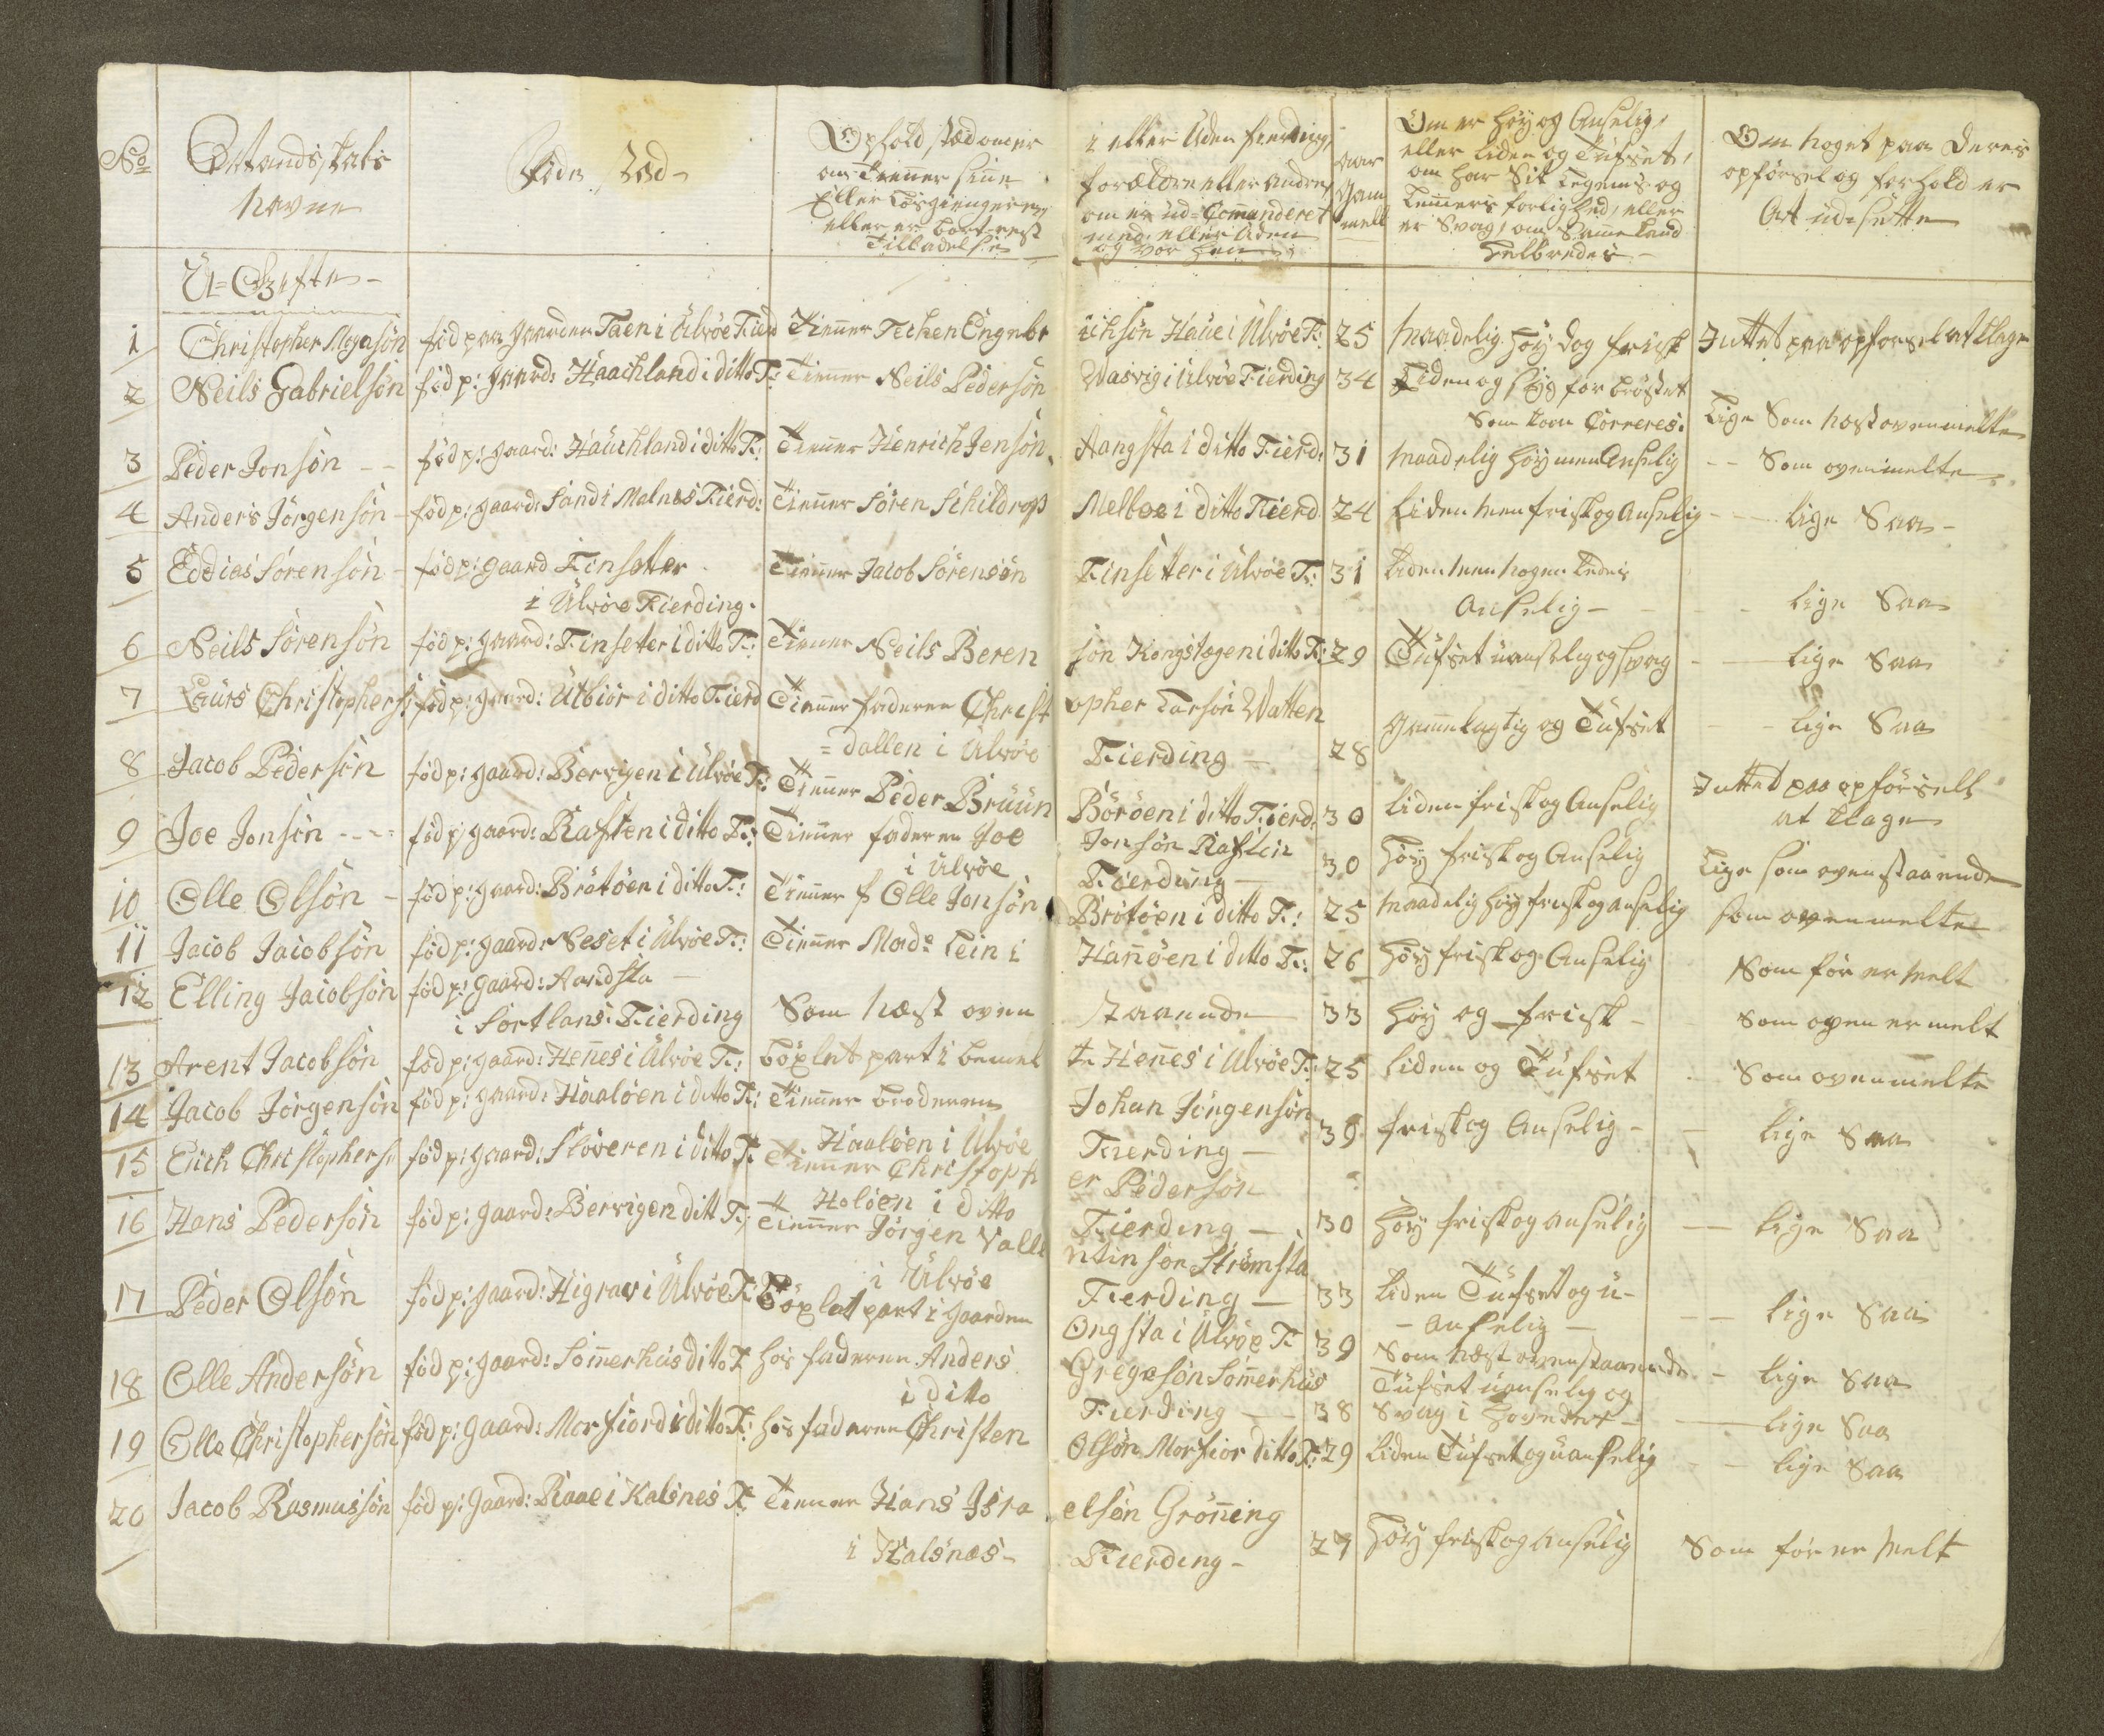 No
Mandskabs
navne
Føde Stæd
Ophold stæd om er
om Tiener sine
Eller Løsgiengeren
eller er bort reist
Tilladelse
i eller Uden fierding,
forældre eller andre,
om er ud-Commanderet
med eller Uden
og vor hen
aar
gam
mell
Om er høy og Anselig,
eller liden og Tufset,
om har Sit Legems og
Lemmers forlighed, eller
er Svag, om Samme kand
Helbredes
Om noget paa Deres
opførsel og forhold er
At ud-sette
U-Gifte
1 Christopher Mogensøn fød paa gaarden Taen i Ulvøe Fierd Tienner Techen Engebr ichsøn Haue i Ulvøe F: 25 maadelig høy dog frisk Intet paa opforsel at klage
2 Neils Gabrielsøn fød p: gaard: Haachland i ditto F: Tienner Neils Pedersøn Wasvig i Ulvøe Fierding 34 Liden og syg for brøstet
Som kan Correres. Lige Som nestovenmelte
3 Peder Jonsøn fød p: gaard: Hauchland i ditto F: Tienner Henrich Jensøn Aangsta i ditto Fierd: 31 maadelig høy men Anselig Som ovenmelte
4 Anders Jørgensøn fød p: gaard: Sand i Malnes Fierd: Tienner Søren Schildrop Melboe i ditto Fierd. 24 Liden men frisk og Anselig lige Saa
5 Eddias Sørensøn fød p: gaard Finsetter Tienner Jacob Sørensøn Finsetter i Ulvøe F: 31 Liden men nogen ledes
i Ulvøe Fierding. Anselig lige Saa
6 Neils Sørensøn fød p: gaard: Finseter i ditto F: Tienner Neils Beren søn Kongstegen i ditto F: 29 Tufset uanselig og svag lige Saa
7 Laurs Christophers: fød p: gaard: Utbiør i ditto Fierd Tienner faderen Christ opher Larsøn Watten
= dallen i Ulvøe Fierding 28 gammelagtig og Tufset lige Saa
8 Jacob Pedersøn fød p: gaard: Bervigen i Ulvøe F: Tienner Peder Bruun Børøen i ditto Fierd. 30 liden frisk og Anselig Intted paa opførsels
at klage
9 Joe Jonsøn fød p: gaard: Raften i ditto F: Tienner faderen Joe Jonsøn Raften
i Ulvøe Fierding 30 høy frisk og Anselig Lige som ovenstaaende
10 Olle Olsøn fød p: gaard: Brøtøen i ditto F: Tienner f Olle Jonsøn Brøtøen i ditto F: 25 maadelig høy frisk og anselig som ovenmelte
11 Jacob Jacobsøn fød p: gaard: Neset i Ulvøe F: Tienner Made Lein i Hanøen i ditto F: 26 høy frisk og Anselig Som før er melt
12 Elling Jacobsøn fød p: gaard: Aandsta
i Sortlans Fierding Som næst oven staaende 33 høy og frisk Som oven er melt
13 Arent Jacobsøn fød p: gaard: Hennes i Ulvøe F: böxlet part i bemel te Hennes i Ulvøe F: 25 liden og Tufset Som ovenmelte
14 Jacob Jørgensøn fød p: gaard: Haaløen i ditto F: Tienner broderen Johan Jørgensøn
Haaløen i Ulvøe Fierding 39 frisk og Anselig lige Saa
15 Erich Christophers: fød p: gaard: Støveren i ditto F. Tienner Christoph er Pedersøn
Holøen i ditto Fierding 30 høy frisk og anselig lige Saa
16 Hans Pedersøn fød p: gaard: Bervigen ditt F: Tienner Jørgen Valle ntinsøn Strømsta
i Ulvøe Fierding 33 liden Tufset og u-
anselig lige Saa
17 Peder Olsøn fød p: gaard: Higrav i Ulvøe F: Böxlet part i gaarden Ongsta i Ulvøe F 39 Som næst ovenstaaende lige Saa
18 Olle Andersøn fød p: gaard: Sommerhus ditto F hos faderen Anders Gregesøn Sommerhus Tufset uanselig og
i dito Fierding 38 Svag i hovedet lige Saa
19 Olle Christophersøn fød p: gaard: Morfiord i ditto F: hos faderen Christen Olsøn Morfior ditto F: 29 liden Tufset og uanselig lige Saa
20 Jacob Rasmussøn fød p: gaard: Raae i Kalsnes F. Tienner Hans Isra elsøn Grønning
i Halsnæs Fierding 27 høy frisk og Anselig Som før er melt